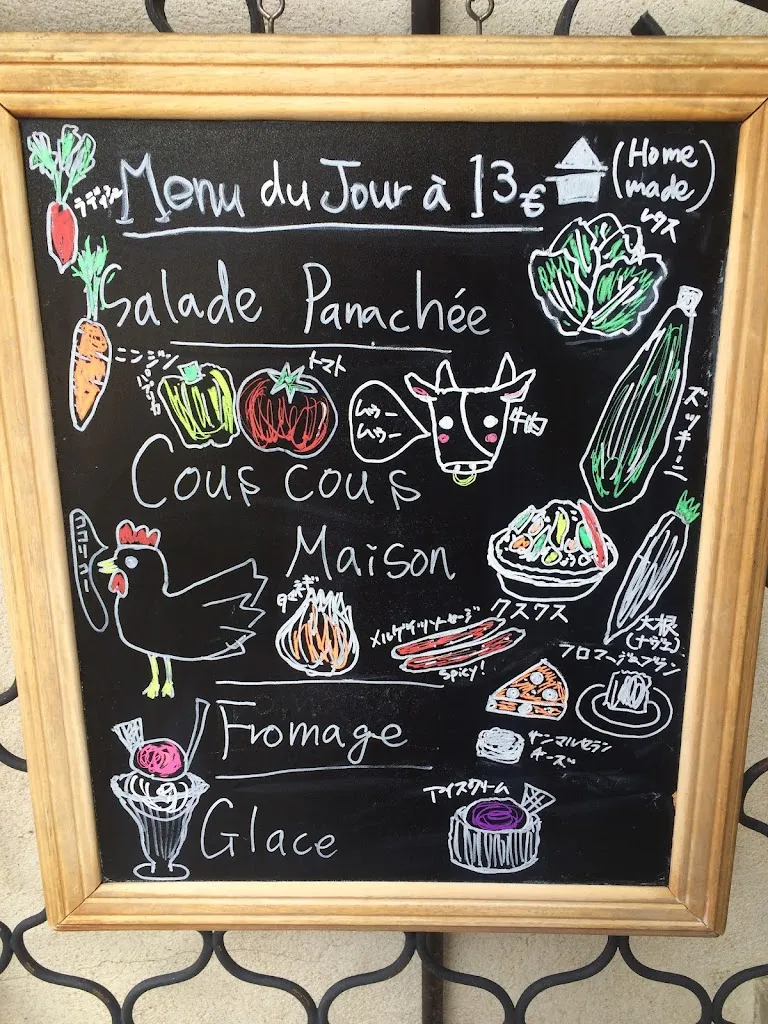 Menu du Jour à 13€
(Home made)
ラディシュ
レタス
Salade Panachée
ニンジン
パプリカ
トマト
ムゥー
ムゥー
牛肉
ズッキーニ
Cous cous
Maison
コココリコー
タマネギ
メルゲイツソーセージ
spicy!
クスクス
大根
(ナヴェ)
フロマージュブラン
Fromage
サンマルセラン
チーズ
アイスクリーム
Glace